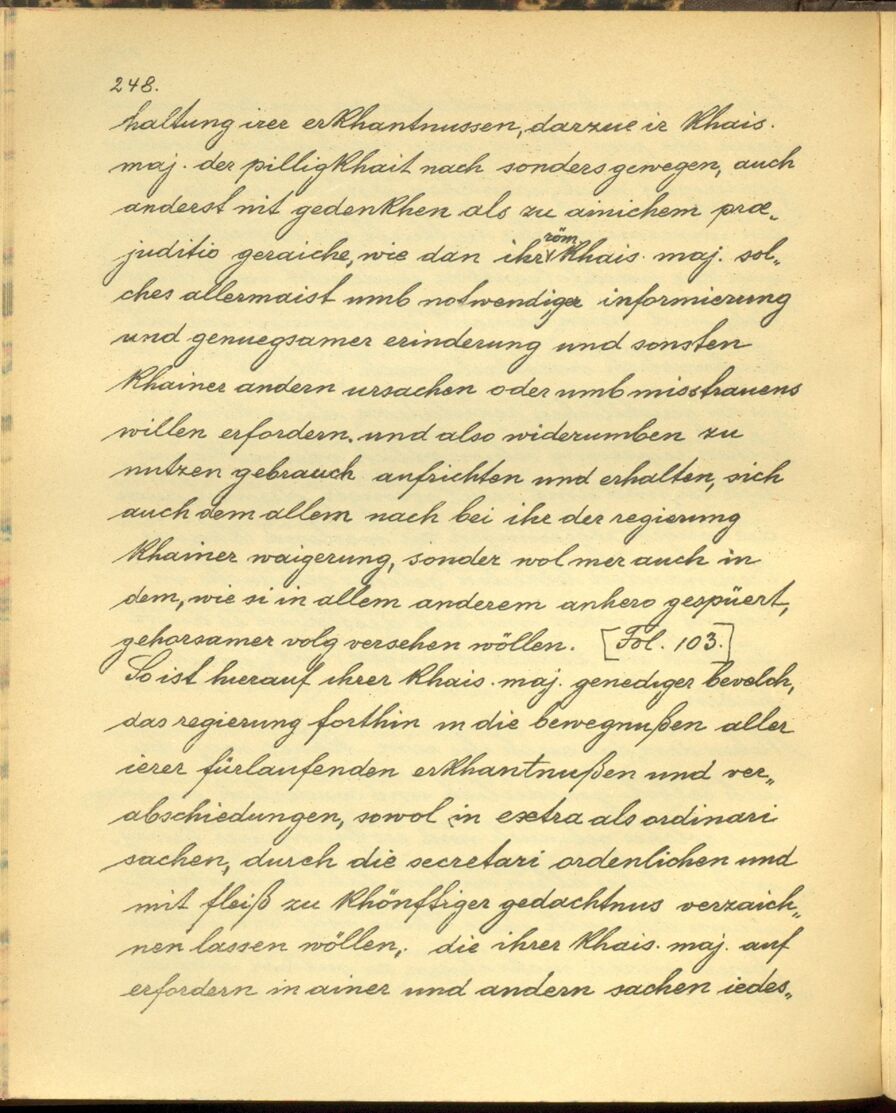 248.
haltung irer erkhantnussen, darzue ir khais.
maj. der pilligkhait nach sonders gewegen, auch
anderst nit gedenkhen als zu ainichem præ„
juditio geraiche, wie dan ihr röm. khais. maj. sol„
ches allermaist umb notwendiger informierung
und genuegsamer erinderung und sonsten
khainer andern ursachen oder umb misstrauens
willen erfordern, und also widerumben zu
nutzen gebrauch aufrichten und erhalten, sich
auch dem allem nach bei ihr der regierung
khainer waigerung, sonder wol mer auch in
dem, wie si in allem anderem anhero gespüert,
gehorsamer volg versehen wöllen. [Fol. 103.]
So ist hierauf ihrer khais. maj. genediger bevelch,
das regierung forthin in die bewegnußen aller
ierer fürlaufenden erkhantnußen und ver„
abschiedungen, sowol in extra als ordinari
sachen, durch die secretari ordenlichen und
mit fleiß zu khönftiger gedachtnus verzaich„
nen lassen wöllen, die ihrer khais. maj. auf
erfordern in ainer und andern sachen iedes„